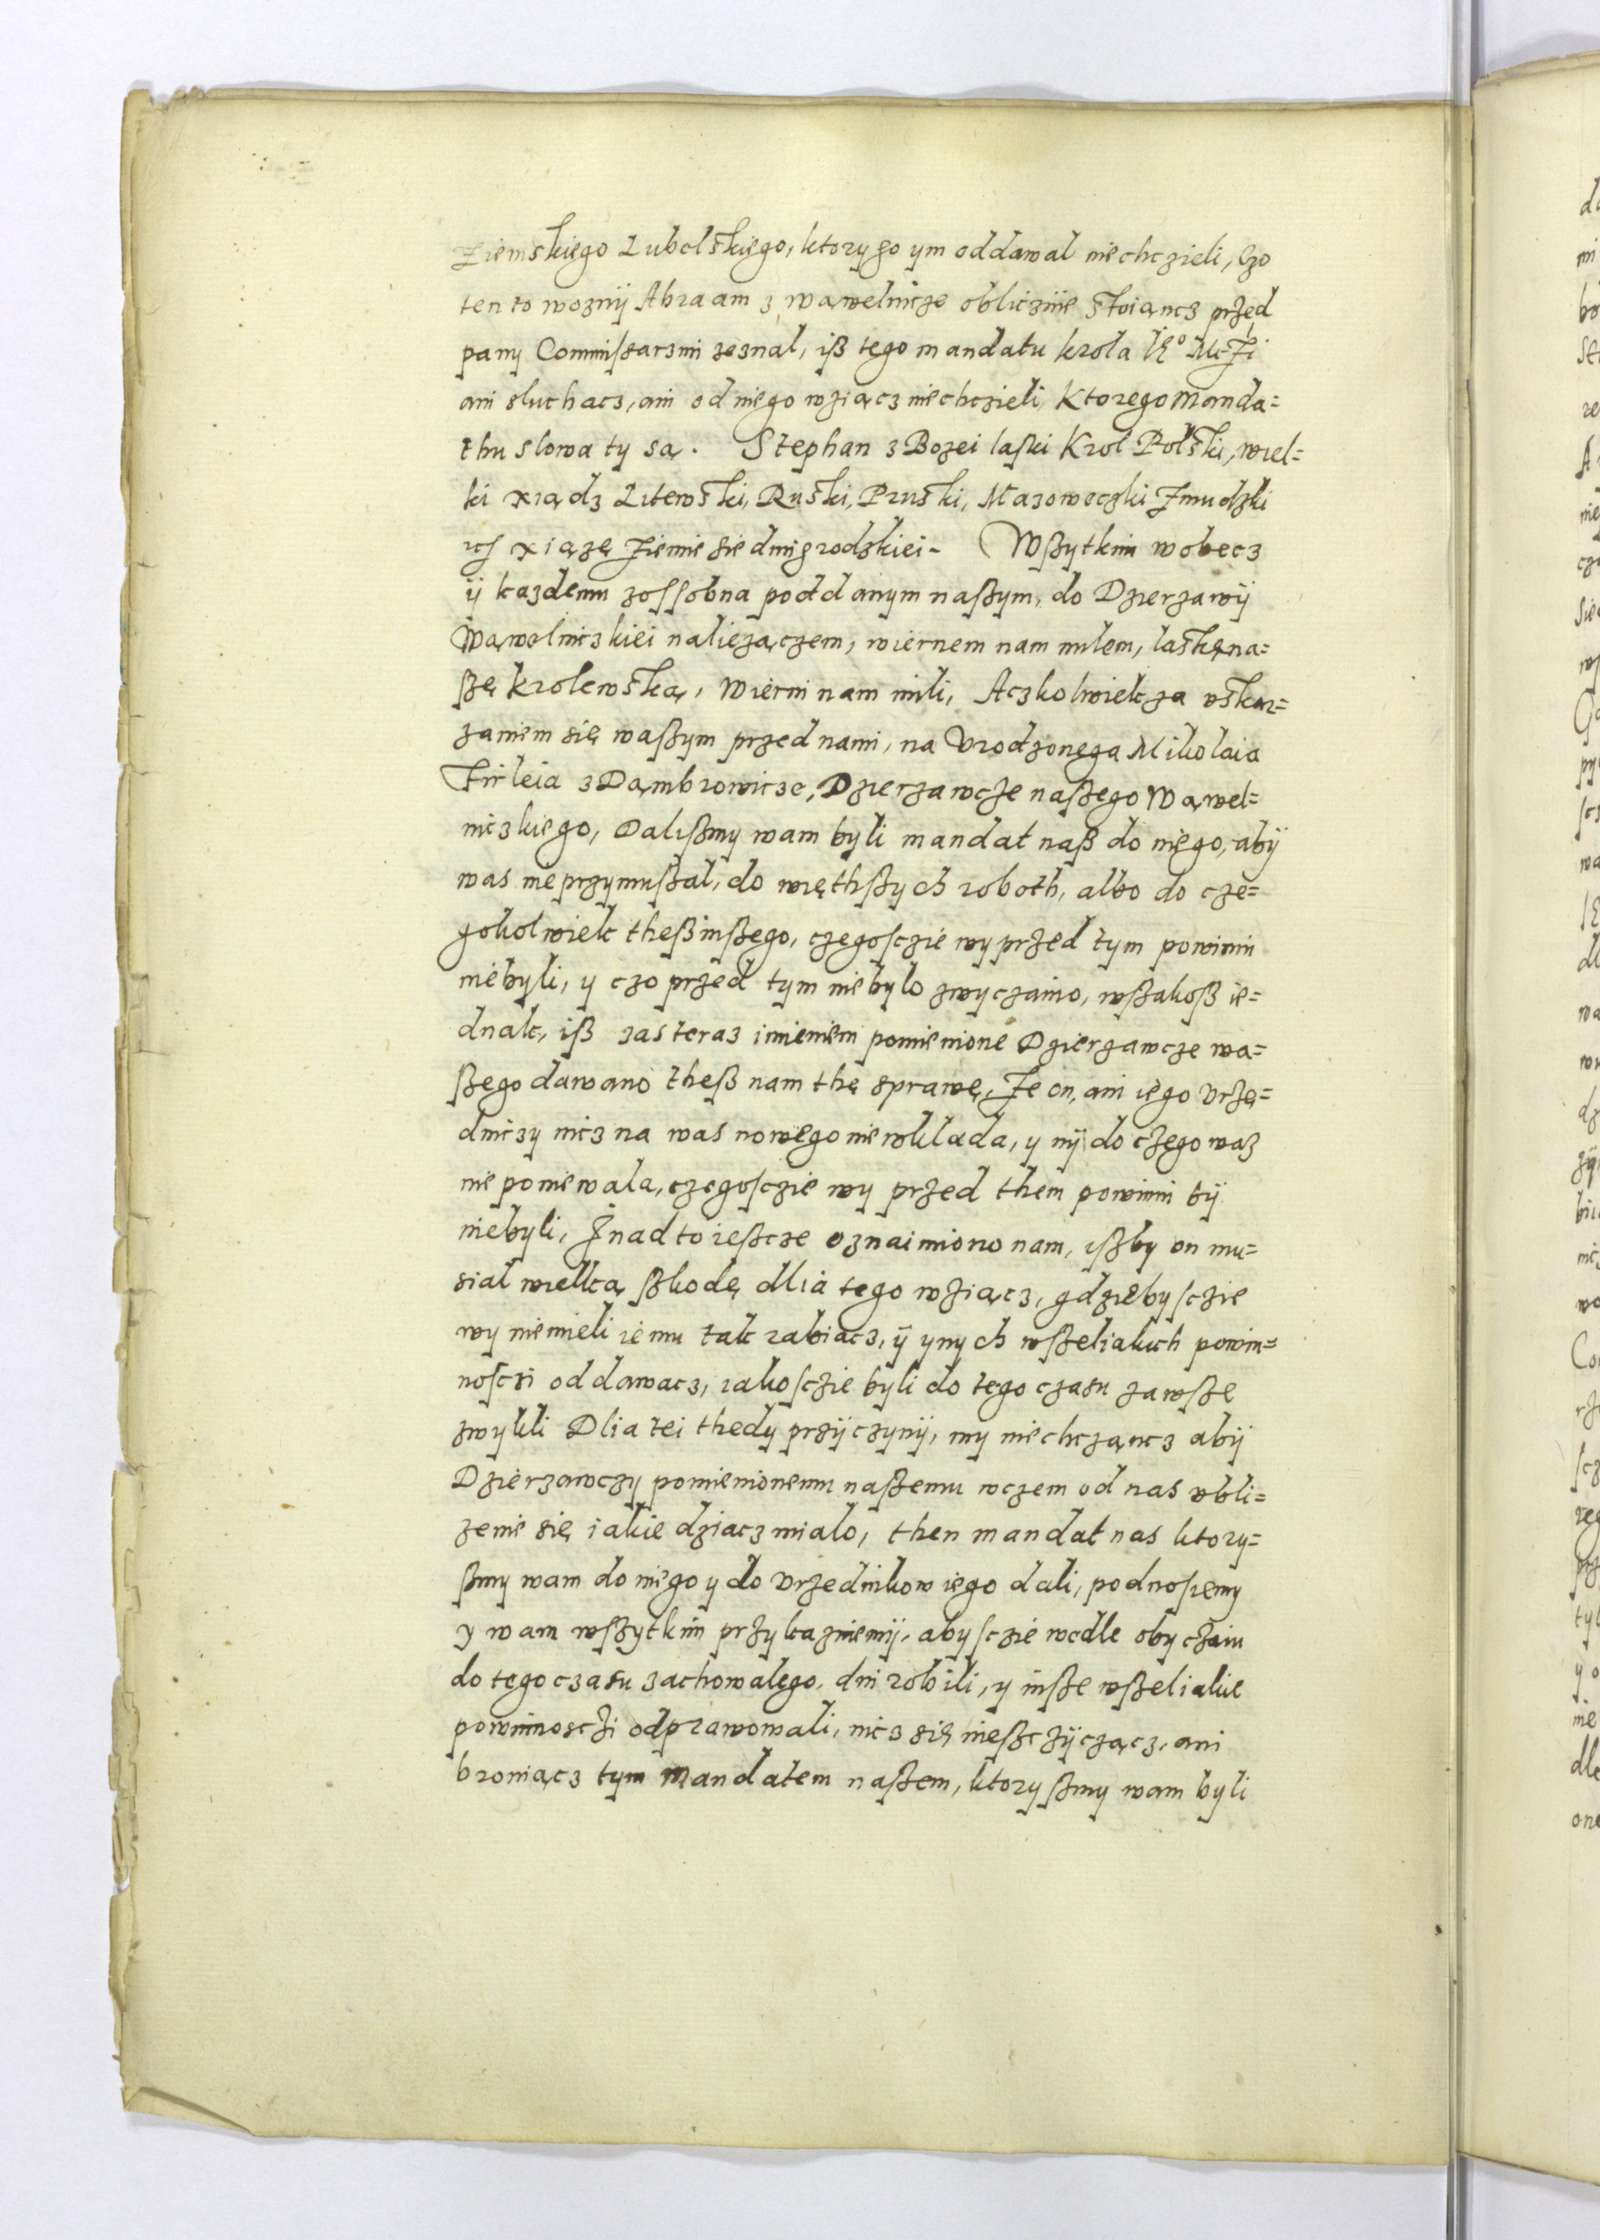 Ziemskiego Lubelskiego, ktory go ym oddawal niechczieli, Czo
ten to woznÿ Abraam z Wąwelnicze obliczniie stoiąncz przed
pany Commissarzmi zeznal, iß tego mandatu krola
ani sluchacz, ani od niego wziącz niechczieli, Ktorego Manda=
thu slowa ty są. Stephan z Bozei laski Krol Polski, wiel=
ki xiądz Litewski, Ruski, Pruski, Mazoweczki Zmudzki
xiązę Ziemie siedmigrodzkiei. Wßytkim wobecz
ÿ kazdemu zossobna poddanym naßym, do DzierzawÿWąwelniczkiei naliezączem, wiernem nam milem, laskę na=
ßę krolewską, Wierni nam mili, Aczkolwiek za uskar=
zaniem się waßym przed nami, na Urodzonega Mikolaia
Firleia z Dąmbrowicze, Dzierzawcze naßego Wąwel=
niczkiego, Dalißmy wam byli mandat naß do niego, abÿ
was nie przymußal, do więthßych roboth, albo do cze=
gokolwiek theß inßego, czegosczie wy przed tym powinni
niebyli, y czo przed tym niebylo zwyczaino, wßakoß ie=
dnak, iß zas teraz imieniem pomienione Dzierzawcze wa=
ßego dawano theß nam thę sprawę, Ze on, ani iego Urzę=
dniczy nicz na was nowego nie wklada, y nÿ do czego waz
nie poniewala, czegosczie wy przed them powinni bÿ
niebyli, Inad to ießcze oznaimiono nam, ißby on mu=
sial wielką ßkodę dlia tego wziącz, gdziebysczie
wy niemieli iemu tak rabiacz, ÿ ynych wßeliakich powin=
nosczi oddawacz, iakosczie byli do tego czasu zawße
zwykli Dlia tei thedy przÿczynÿ, my niechcząncz abÿ
Dzierzawczy pomienionemu naßemu wczem od nas ubli=
zenie się iakie dziacz mialo, then mandat nas ktory=
ßmy wam do niego y do Urzednikow iego dali, podnosiemy
y wam wßytkim przykazuiemÿ, abysczie wedle obyczaiu
do tego czasu zachowalego, dni robili, y inße wßeliakie
powinnosczi odprawowali, nicz się nießczÿczącz, ani
broniącz tym Mandatem naßem, ktoryßmy wam byli